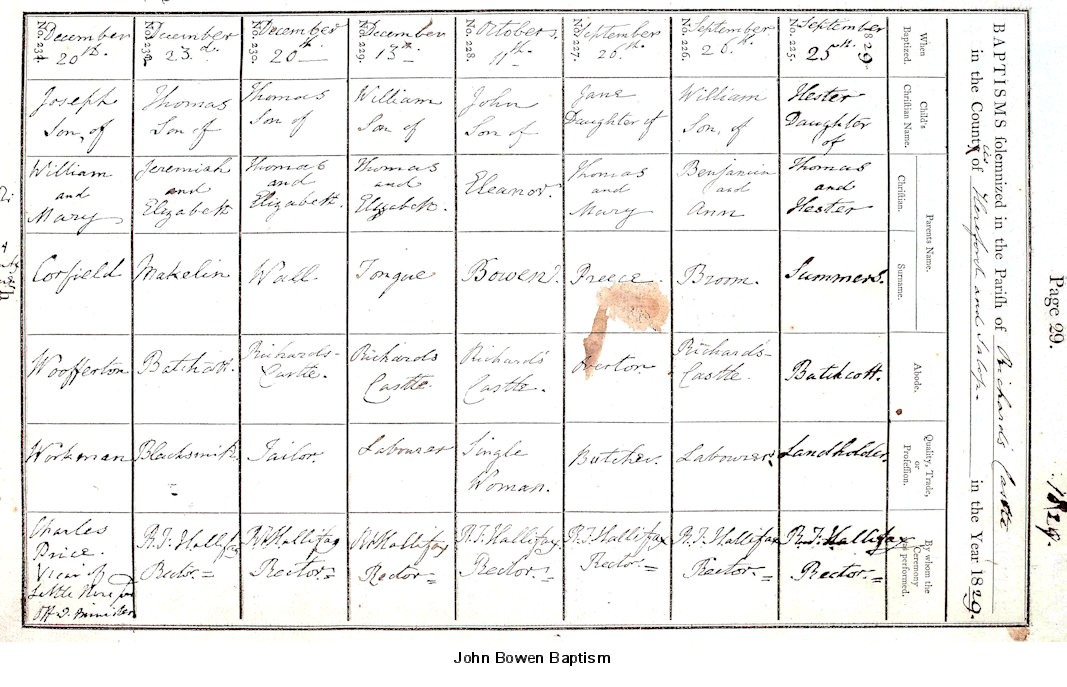 Page 29.
1829.
BAPTISMS solemnized in the Parish of Richards Castle
in the Counties of Hereford and Salop in the Year 1829.
When Baptized.
Child's Christian Name.
Parents Name.
Christian.
Surname.
Abode.
Quality, Trade, or Profession.
By whom the Ceremony was performed.
1829
September
25th.
No. 225.
Hester
Daughter
of
Thomas
and
Hester
Summers.
Batchcott.
Landholder.
R. F. Hallifax
Rector.=
September
26th.
No. 226.
William
Son of
Benjamin
and
Ann
Broom.
Richards-
Castle.
Labourer.
R. F. Hallifax
Rector.=
September
26th.
No. 227.
Jane
Daughter of
Thomas
and
Mary
Preece.
Overton.
Butcher.
R. F. Hallifax
Rector.=
October
11th.
No. 228.
John
Son of
Eleanor
Bowen.
Richards'
Castle.
Single
Woman.
R. F. Hallifax
Rector.=
December
13th.
No. 229.
William
Son of
Thomas
and
Elizabeth.
Tongue
Richards
Castle.
Labourer
Hallifax
Rector=
December
20th
No. 230.
Thomas
Son of
Thomas
and
Elizabeth.
Wall.
Richards-
Castle.
Tailor.
Hallifax
Rector.=
December
23d.
Thomas
Son of
Jeremiah
and
Elizabeth
Makelin
Batchcott.
Blacksmith.
R. F. Hallifax
Rector.=
December
20th.
Joseph
Son of
William
and
Mary
Corfield
Woofferton
Workman
Charles
Price.
Vicar of
Little
Off. Minister
John Bowen Baptism